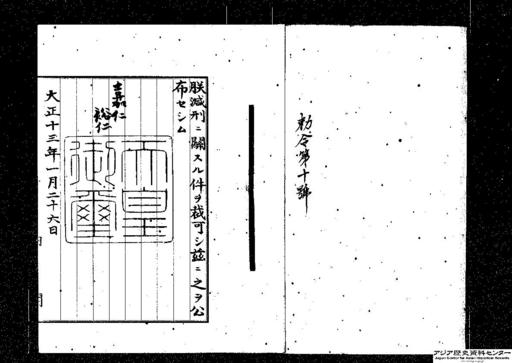 勅令第十號
朕減刑ニ關スル件ヲ裁可シ茲ニ之ヲ公
布セシム
嘉仁
裕仁
天皇
御璽
大正十三年一月二十六日
アジア歴史資料センター
Japan Center for Asian Historical Records